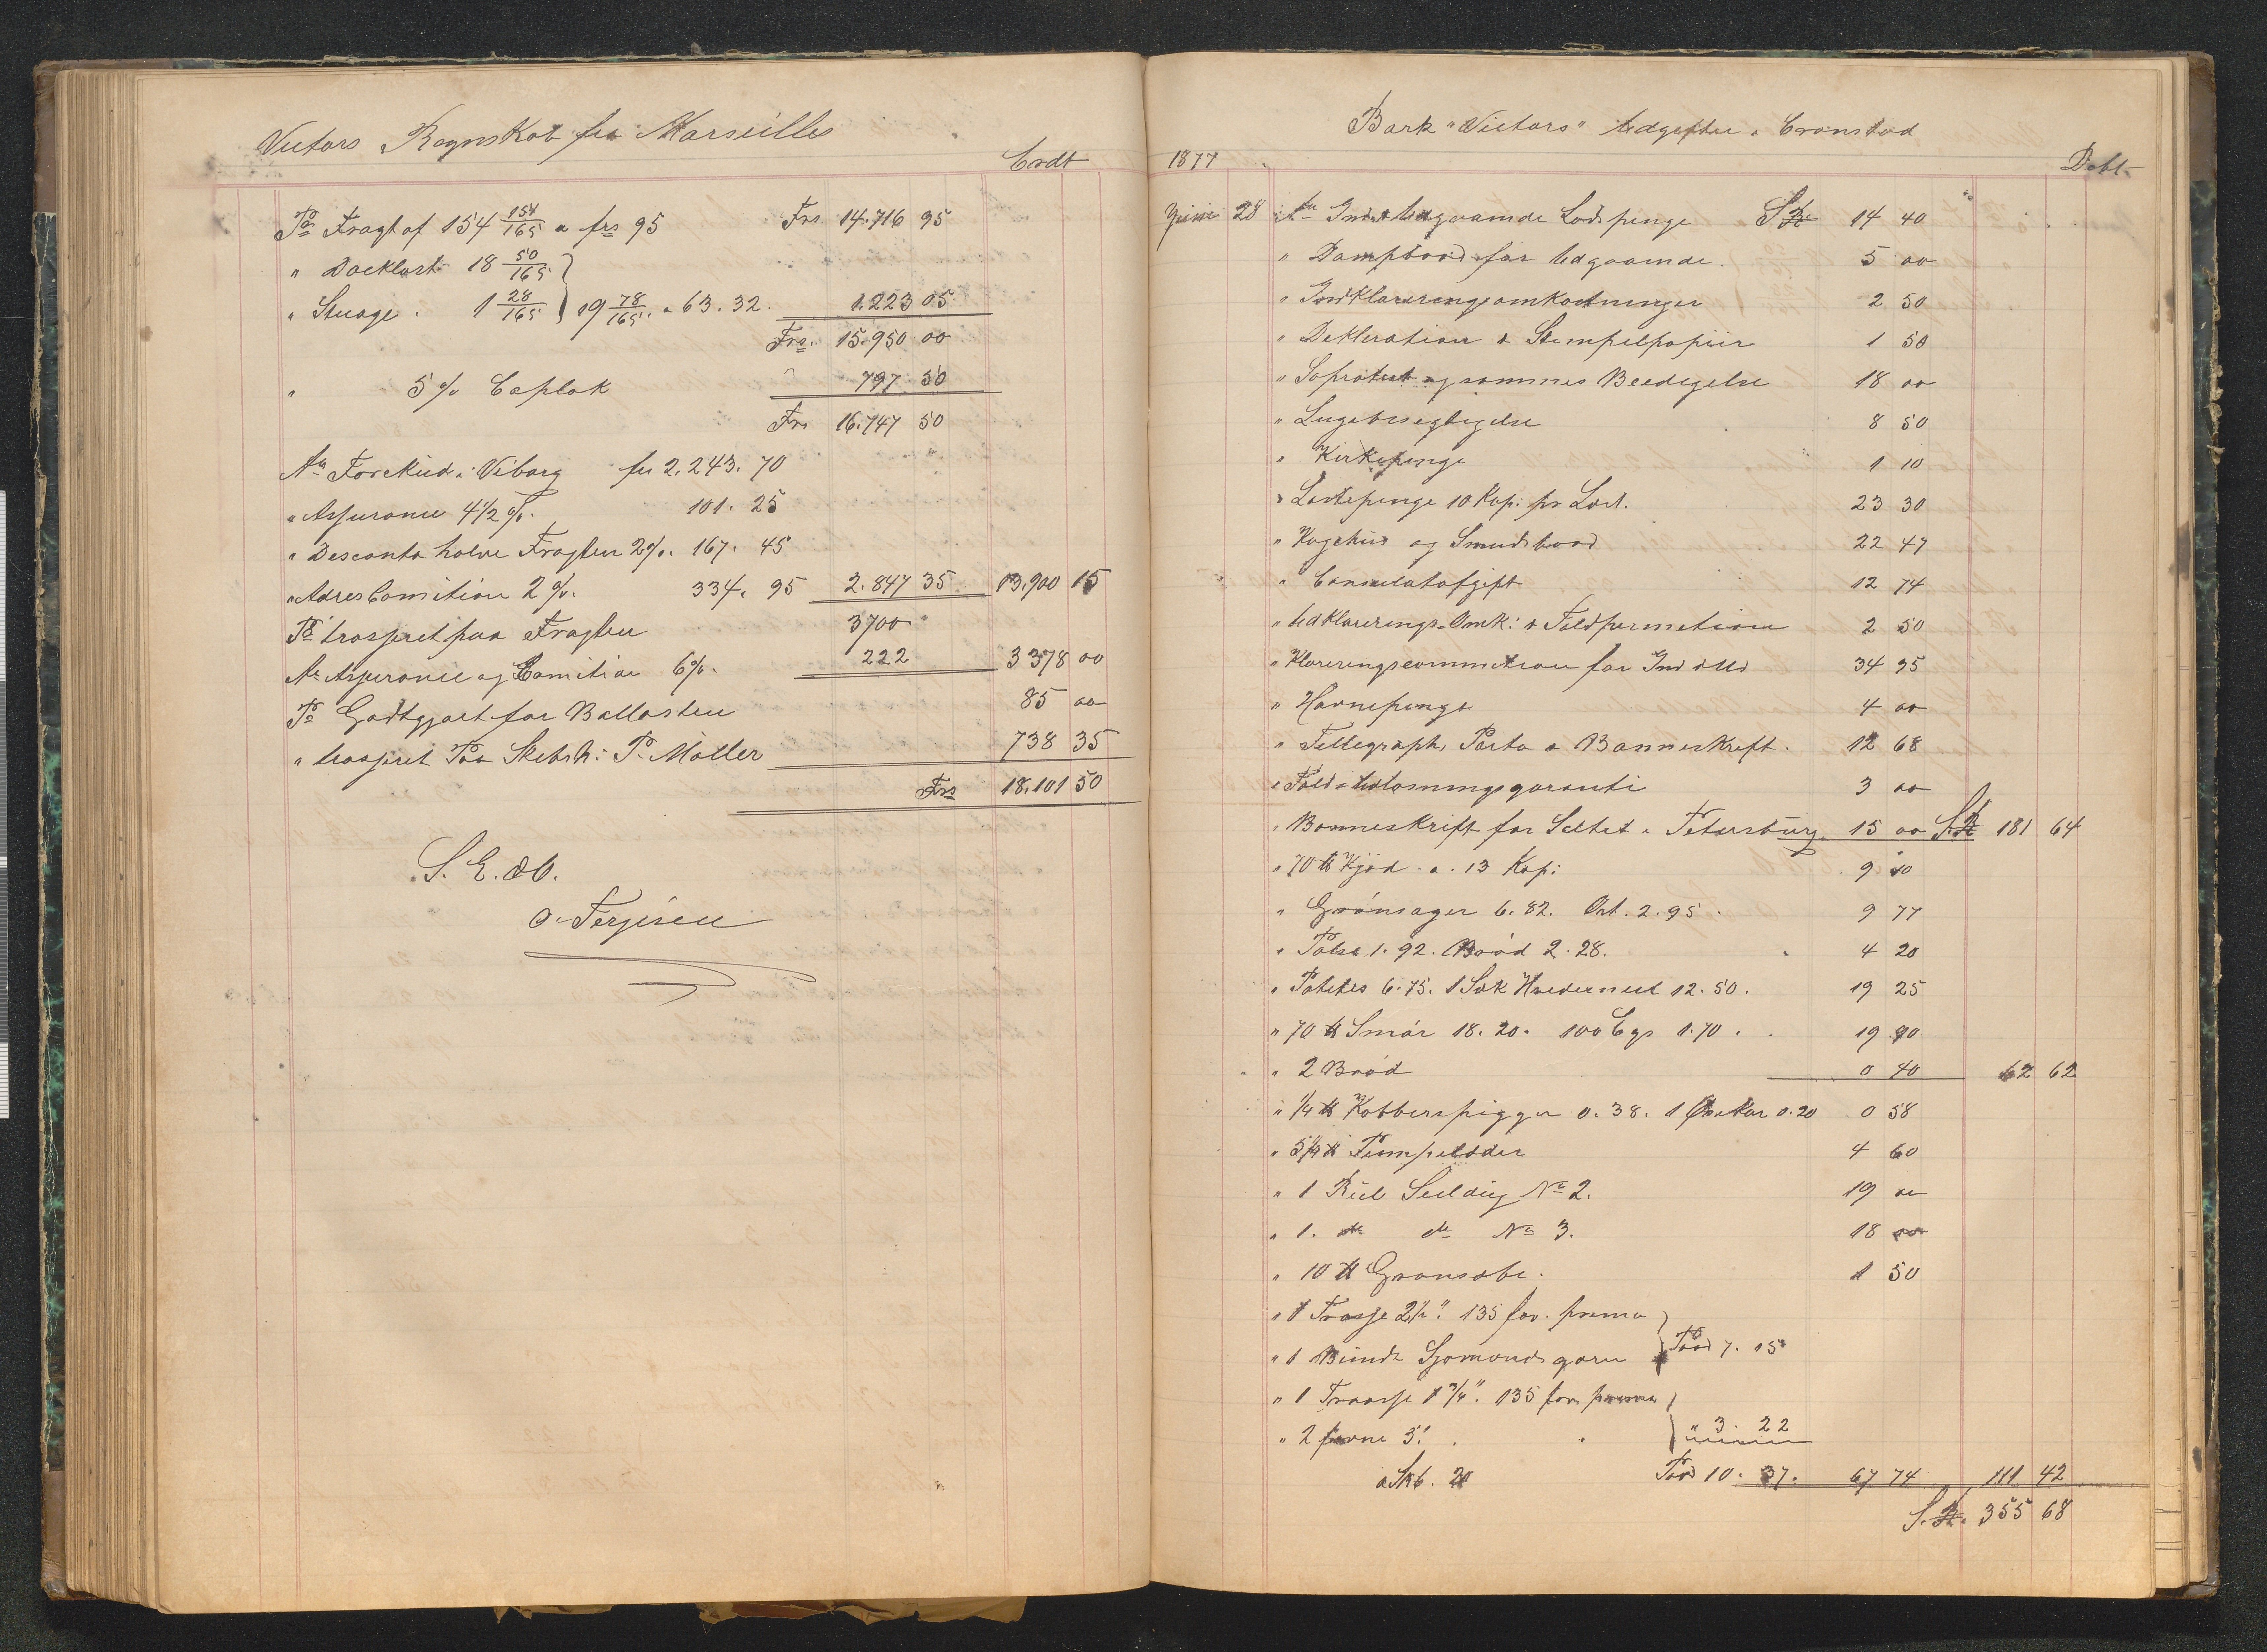 Victors Regnskab fra Marseilles
Credt
Pr Fragt af 154 151/165 a frs 95 Frs. 14.716 95
" Dæklast 18 50/165
" Stuage. 1 28/165 } 19 78/165. a 63.32. 1.223 05
Frs. 15.950 00
" 5 % Caplak " 797 50
Frs 16.747 50
An Forskud i Viborg frs 2.243. 70
" Assurance 4 1/2 %. 101. 25
" Desconto halve Fragten 2%. 167. 45
" Adres Comition 2 %. 334. 95 2.847 35 13,900 15
Pr trasseret paa Fragten 3700
An Assurance og Comition 6%. 222 3378 00
Pr Godtgjort for Ballasten 85 00
" trasseret Paa Skibsh: P. Möller 738 35
Frs 18.101 50
S. E. & O.
O. Terjesen
Bark "Victors" Udgifter i Cronstad
1877 Debt
Juni 28 An Ind & Udgaaende Lodspenge S.R. 14 40
" Dampbaad for Udgaaende. 5 00
" Indklareringsomkostninger 2 50
" Dekleration & Stempelpapiir 1 50
" Søprotest og sammes Beedigelse 18 00
" Lugebesegtigelse 8 50
" Kirkepenge 1 10
" Lastepenge 10 Kop: pr Læst. 23 30
" Kogehus og Smudsbaad 22 47
" Consulatafgift 12 74
" Udklarerings-Omk: & Toldpermetion 2 50
" Klareringscommetion for Ind & Ud 34 95
" Havnepenge 4 00
" Tellegraph, Porto & Bønneskrift. 12 68
" Told & Udlosningsgaranti 3 00
" Bønneskrift for Saltet i Petersburg 15 00 S.R 181 64
" 70 ℔ Kjød a. 13 Kop: 9 10
" Grønsager 6.82. Ost. 2.95. 9 77
" Pølse 1.92. Brød 2.28. 4 20
" Potetes 6.75. 1 Sæk Hvedemeel 12.50. 19 25
" 70 ℔ Smør 18.20. 100 Egs 1.70. 19 90
" 2 Brød 0 40 62 62
" 1/4 ℔ Kobberspigger 0.38. 1 Øsekar 0.20 0 58
" 5 1/4 ℔ Pumpelæder 4 60
" 1 Rul Seildug No 2. 19 00
" 1. do do No 3. 18 00
" 10 ℔ Grønsæbe. 1 50
" 1 Trosse 2 1/2". 135 fav. prima
" 1 Bundt Sjømandsgarn } Pood 7. 15
" 1 Traasse 1 3/4". 135 fav prima
" 2 favne 5". } " 3. 22
a Skb. 20 Pood 10. 37. 67 74 111 42
S.R. 355 68